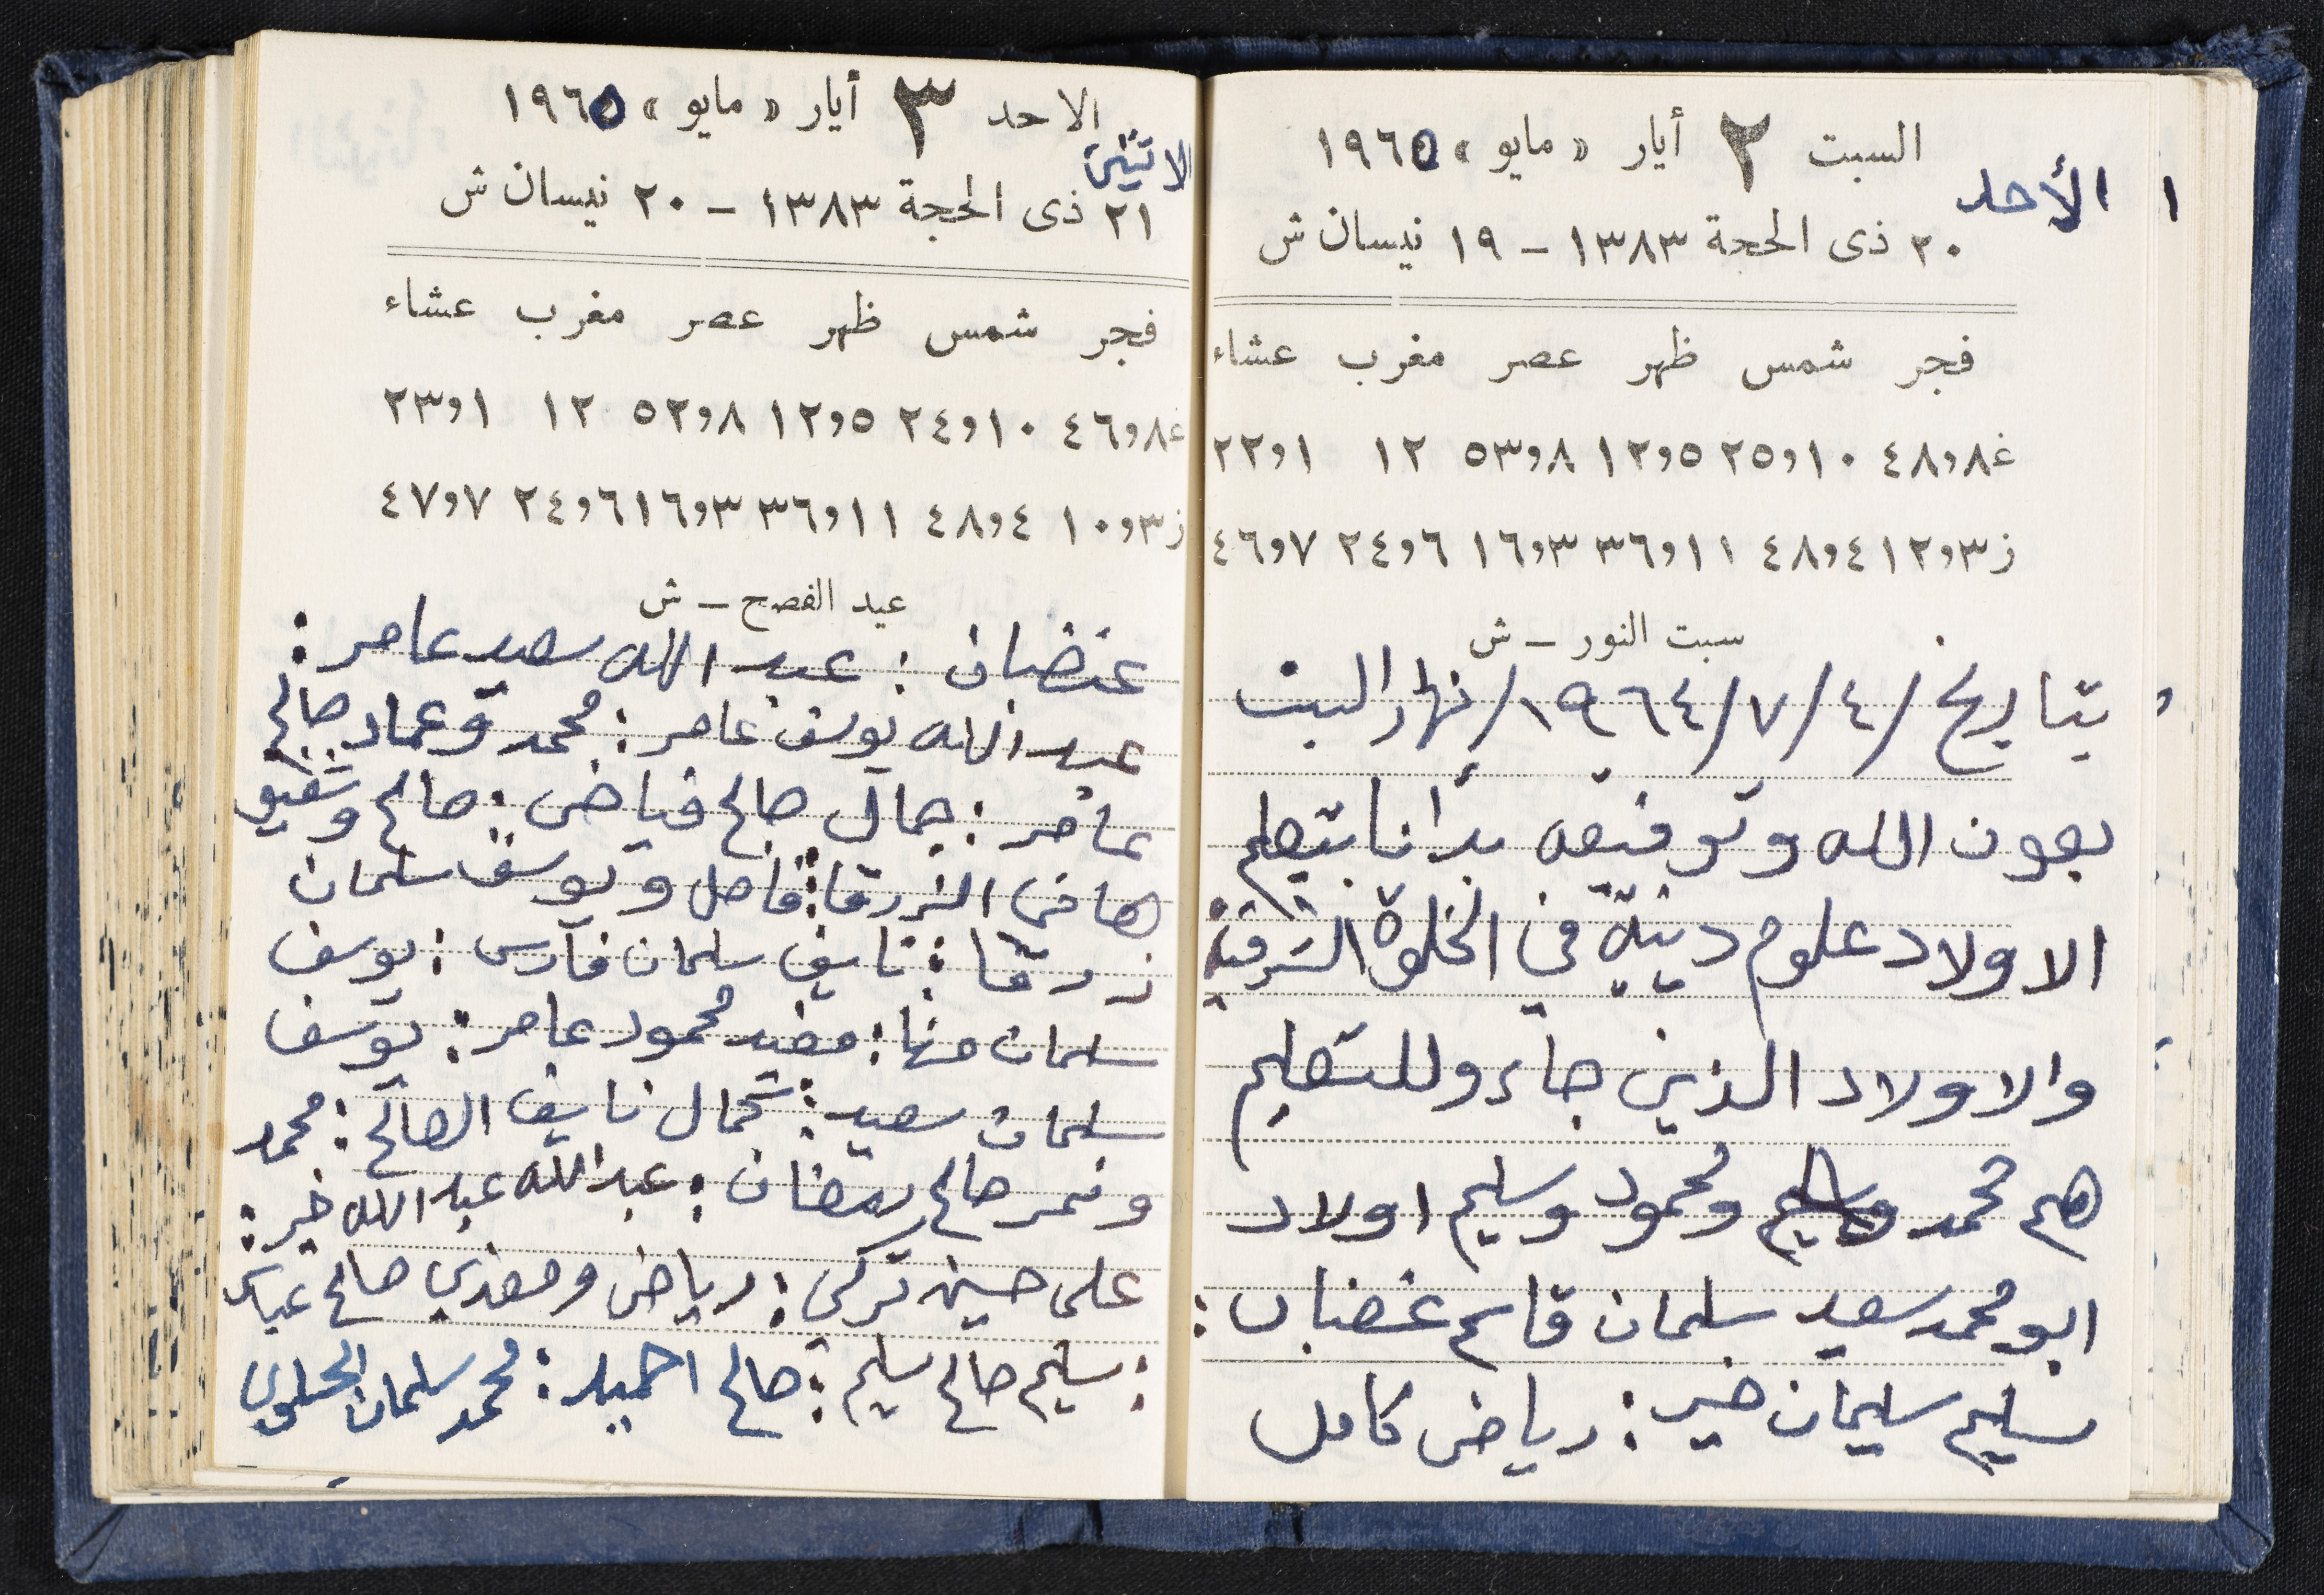 السبت ٢ أيار « مايو » ١٩٦٥
١ الأحد
٢٠ ذى الحجة ١٣٨٣ – ١٩ نيسان ش
فجر شمس ظهر عصر مغرب عشاء
غ ٤٨و٨ ٢٥و١٠ ١٢و٥ ٥٣و٨ ١٢ ٢٢و١
ز ١٢و٣ ٤٨و٤ ٣٦و١١ ١٦و٣ ٢٤و٦ ٤٦و٧
سبت النور – ش
بتاريخ /٤/٧/١٩٦٤/ نهار السبت
بعون الله وتوفيقه بدأنا بتعليم
الاولاد علوم دينية في الخلوة الشرقية
والاولاد الذين جاءو للتعليم
هم محمد ومحمود وسليم اولاد
ابو محمد سعيد سلمان قاسم غضبان :
سليم سليمان خير : رياض كامل
الاحد ٣ أيار « مايو » ١٩٦٥
الاثنين
٢١ ذى الحجة ١٣٨٣ – ٢٠ نيسان ش
فجر شمس ظهر عصر مغرب عشاء
غ ٤٦و٨ ٢٤و١٠ ١٢و٥ ٥٢و٨ ١٢ ٢٣و١
ز ١٠و٣ ٤٨و٤ ٣٦و١١ ١٦و٣ ٢٤و٦ ٤٧و٧
عيد الفصح – ش
غضبان : عبد الله سعيد عامر :
عبد الله يوسف عامر : محمد وعماد صالح
عامر : جمال صالح فياض : صالح وشفيق
هاني الزرقا : فاضل ويوسف سلمان
زرقا : نايف سلمان فارس : يوسف
سلمان مهنا : مفيد محمود عامر : يوسف
سلمان سعيد : كمال نايف الصالح : محمد
ونمر صالح رمضان : عبد الله عبد الله خير :
علي حسين تركي : رياض ومفدي صالح عباس
: سليم صالح سليم : صالح احميد : محمد سلمان الحلوي